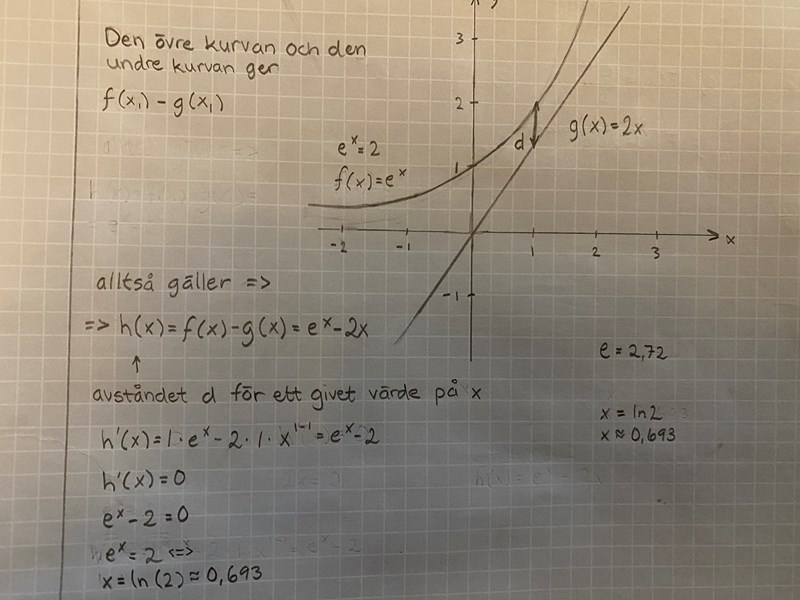 Den övre kurvan och den
undre kurvan ger
f(x₁) - g(x₁)
y
3
2
1
-1
-2 -1 1 2 3 x
eˣ=2
f(x)=eˣ
d
g(x)=2x
alltså gäller =>
=> h(x)=f(x)-g(x)=eˣ-2x
↑
avståndet d för ett givet värde på x
h'(x)=1·eˣ-2·1·x¹⁻¹=eˣ-2
h'(x)=0
eˣ-2=0
eˣ=2 <=>
x=ln(2)≈0,693
e=2,72
x=ln2
x≈0,693